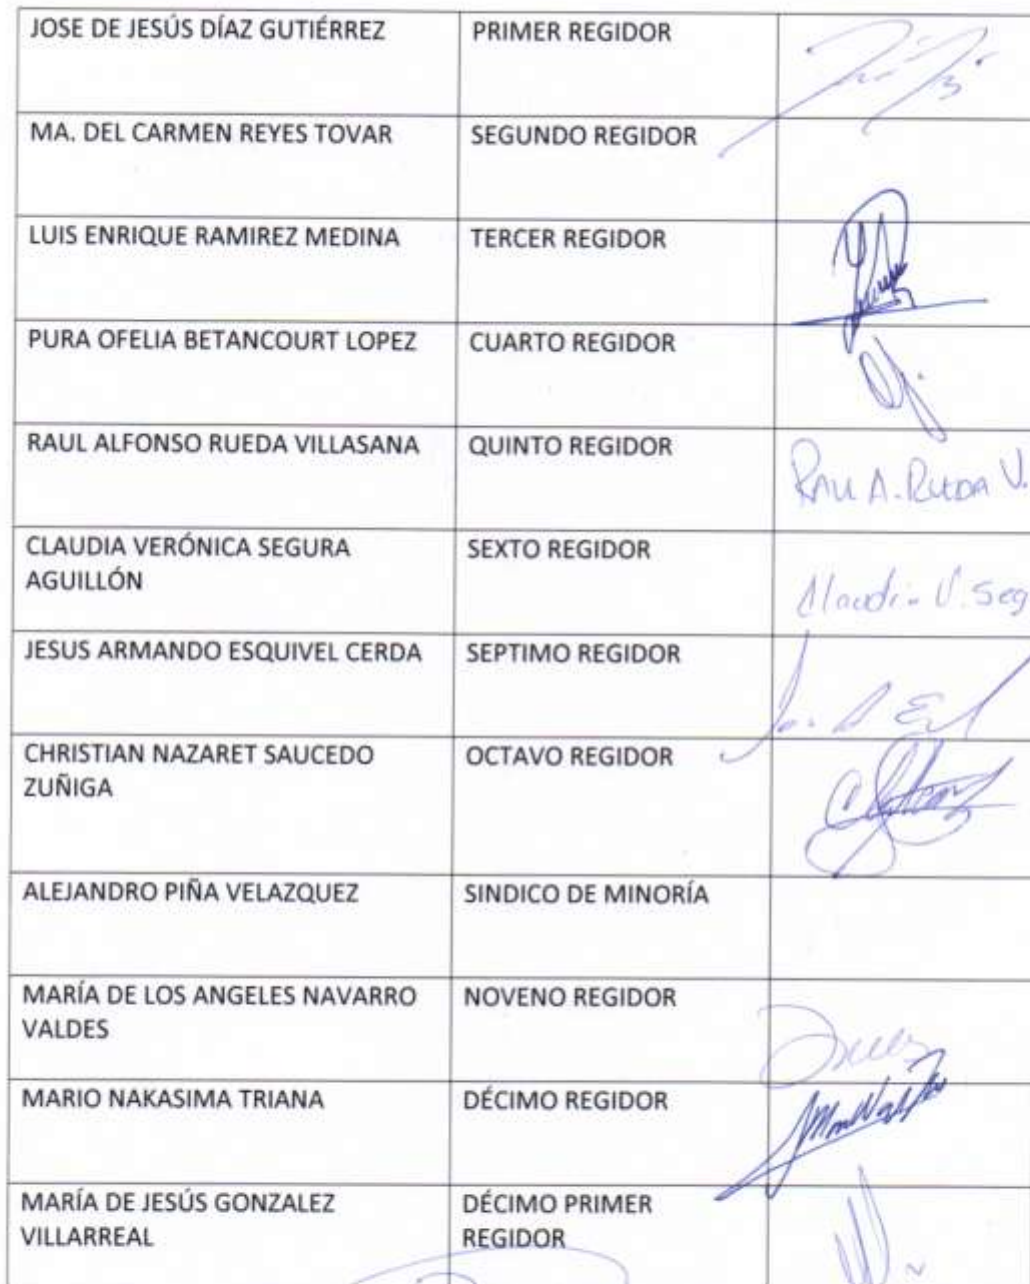 JOSE DE JESÚS DÍAZ GUTIÉRREZ PRIMER REGIDOR
MA. DEL CARMEN REYES TOVAR SEGUNDO REGIDOR
LUIS ENRIQUE RAMIREZ MEDINA TERCER REGIDOR
PURA OFELIA BETANCOURT LOPEZ CUARTO REGIDOR
RAUL ALFONSO RUEDA VILLASANA QUINTO REGIDOR
RAUL A. RUEDA V.
CLAUDIA VERÓNICA SEGURA SEXTO REGIDOR
AGUILLÓN
Claudia V. Seg
JESUS ARMANDO ESQUIVEL CERDA SEPTIMO REGIDOR
CHRISTIAN NAZARET SAUCEDO OCTAVO REGIDOR
ZUÑIGA
ALEJANDRO PIÑA VELAZQUEZ SINDICO DE MINORÍA
MARÍA DE LOS ANGELES NAVARRO NOVENO REGIDOR
VALDES
MARIO NAKASIMA TRIANA DÉCIMO REGIDOR
MARÍA DE JESÚS GONZALEZ DÉCIMO PRIMER
VILLARREAL REGIDOR